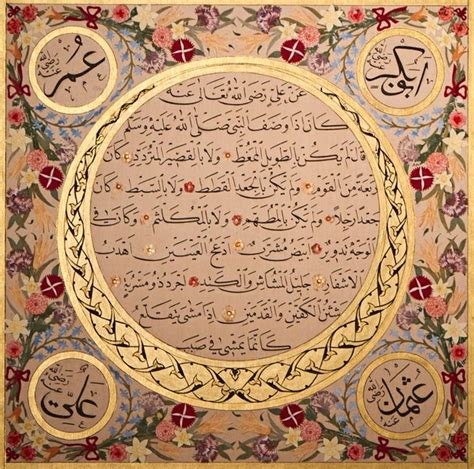 ابوبكر رضي الله عنه
عمر رضي الله عنه
عن علي رضي الله تعالى عنه
كان اذا وصف النبي صلى الله عليه وسلم
قال لم يكن بالطويل الممغط ولا بالقصير المتردد
ربعة من القوم ولم يكن بالجعد القطط ولا بالسبط كان
جعدا رجلا ولم يكن بالمطهم ولا بالمكلثم وكان في
الوجه تدوير ابيض مشرب ادعج العينين اهدب
الاشفار جليل المشاش والكتد اجرد ذو مسربة
شثن الكفين والقدمين اذا مشى يتقلع
كانما يمشي في صبب
عثمان رضي الله عنه
علي رضي الله عنه